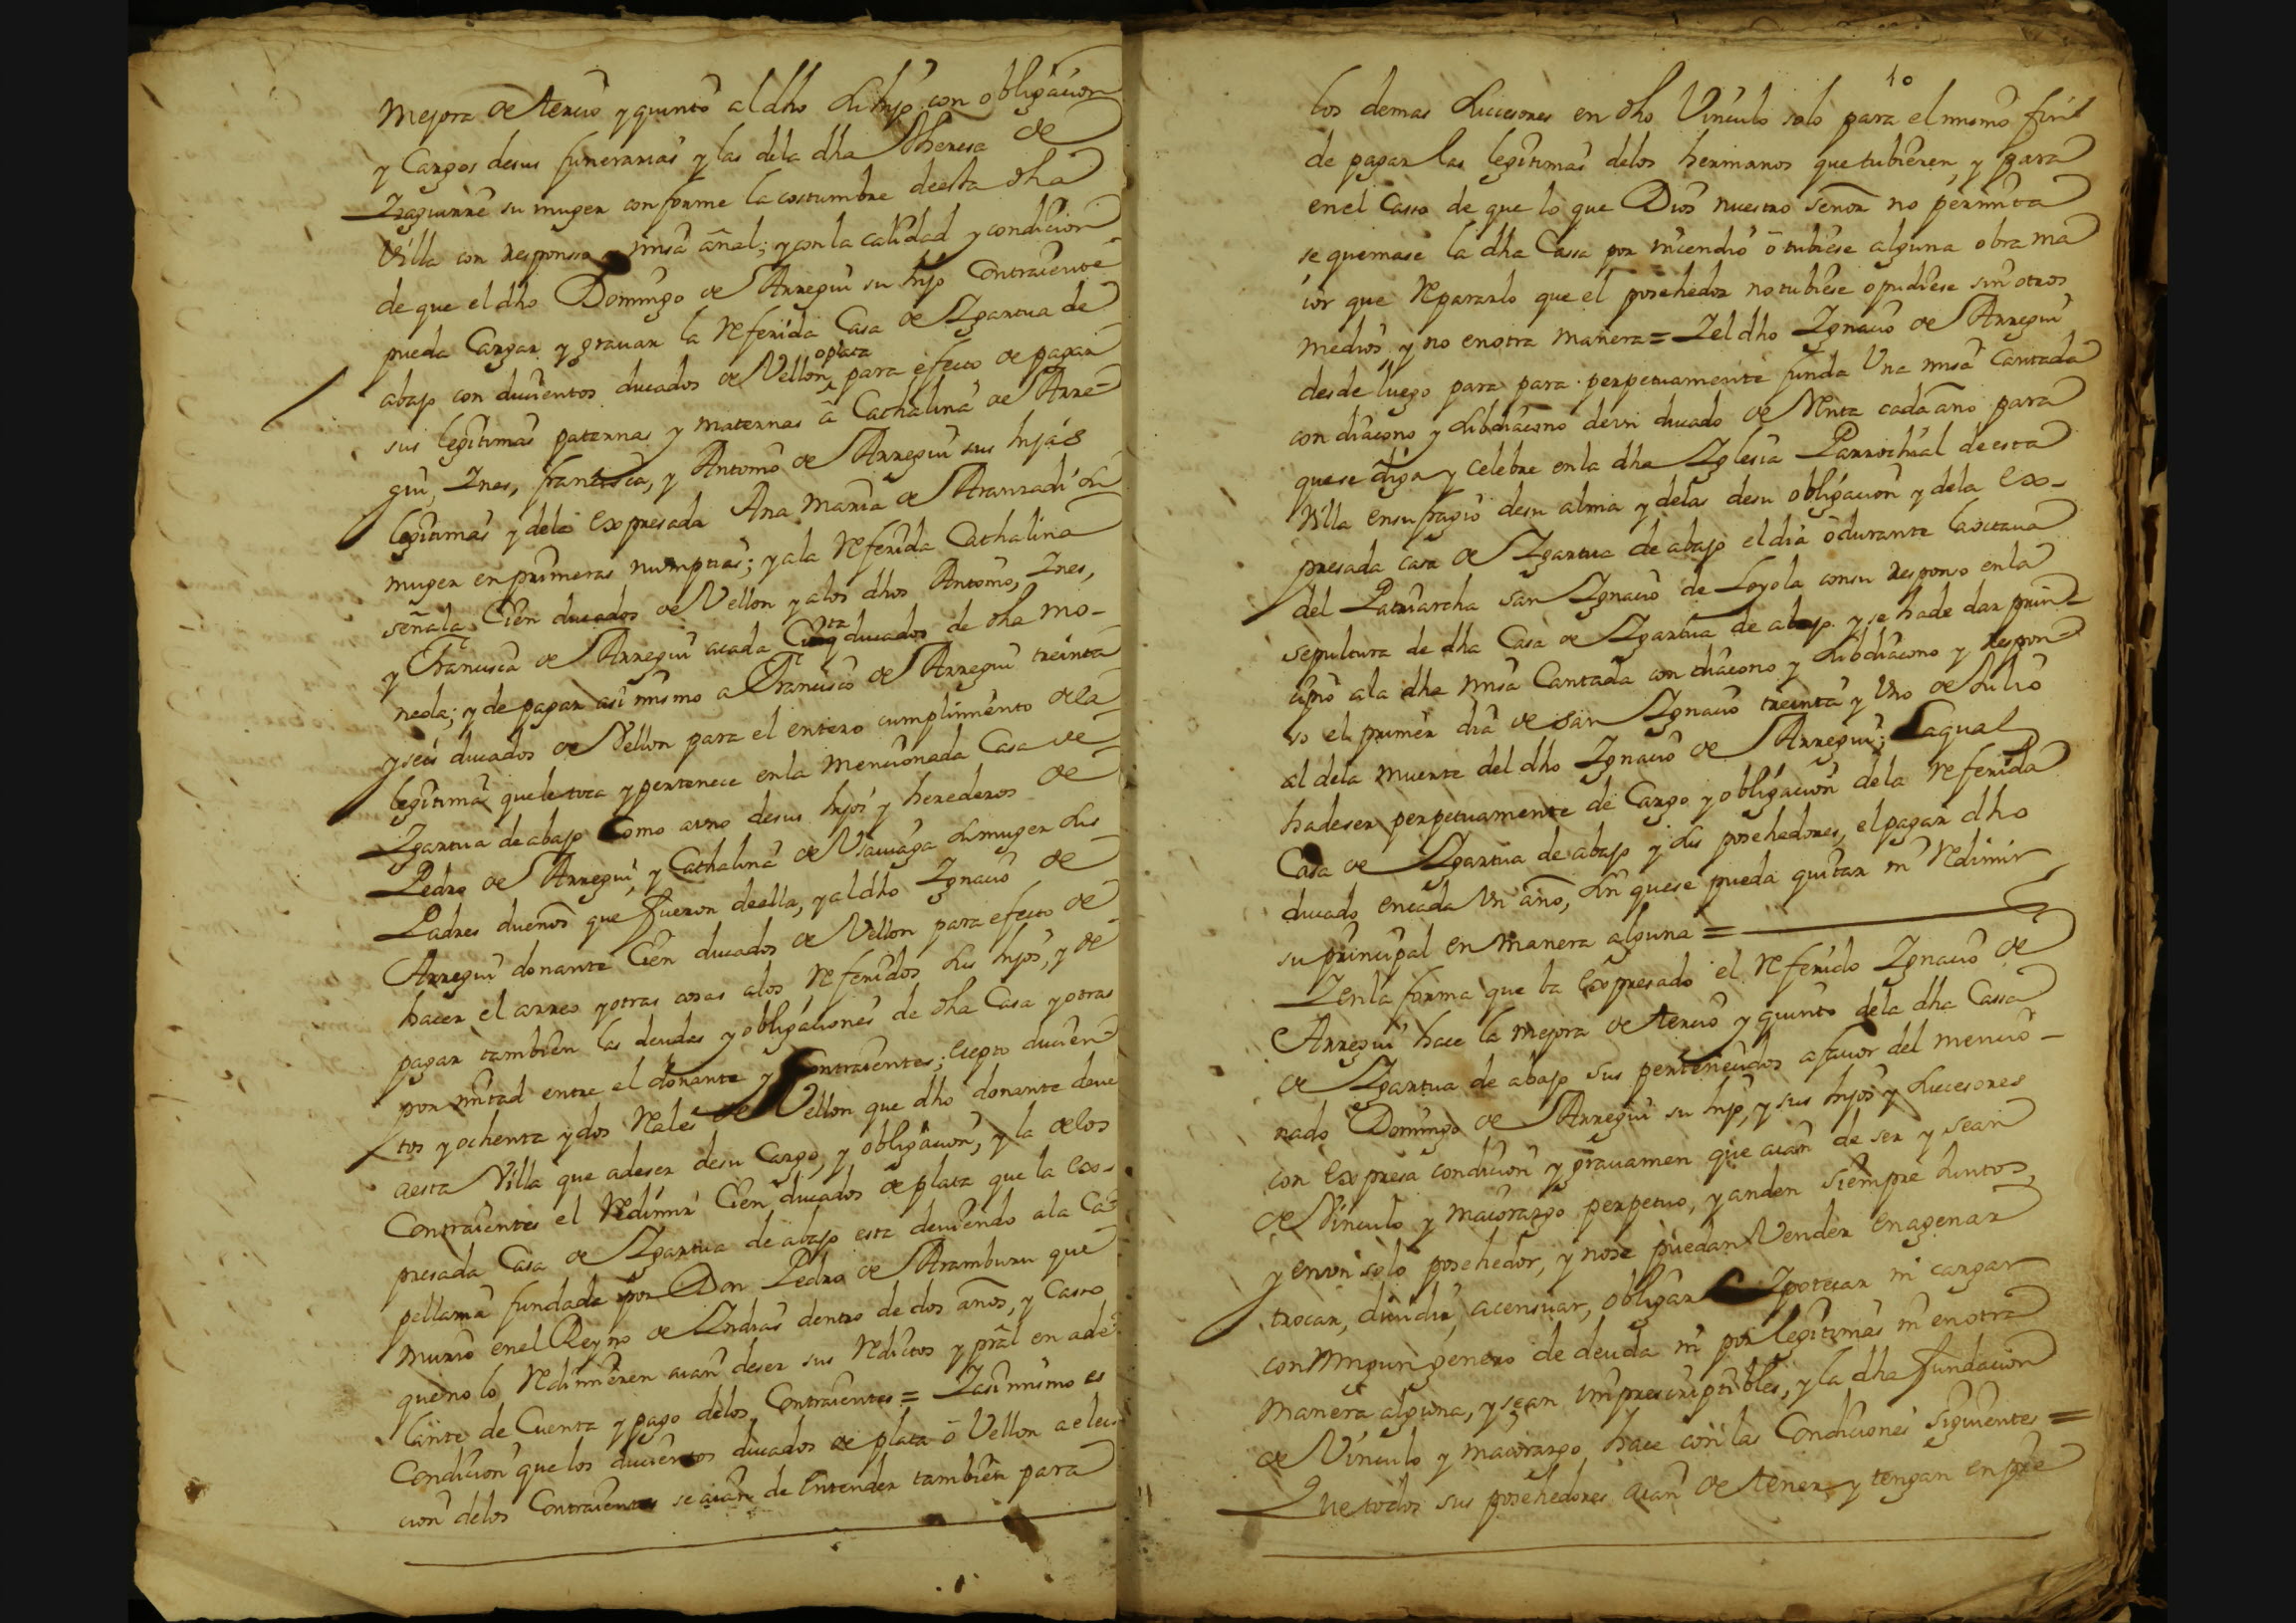 Mejora de tercio y quinto al dho su hijo con obligacion
y Cargos desus funerarias y las dela dha Theresa de
Izaguirre su muger conforme la costumbre deesta dha
Villa con responso misa añal; y con la calidad y condicion
de que el dho Domingo de Arregui su hijo Contraiente
pueda Cargar y grauar la referida Casa de Igartua de
abajo con ducientos ducados de Vellon oplata para efecto de pagar
sus legitimas paternas y maternas â Cathalina de Arre-
gui, Ines, francisca, y Antonio de Arregui sus hijos
legitimas y dela expresada Ana Maria de Aranzadi su
muger en primeras numptias; y ala referida Cathalina
señala Cien ducados de Vellon y alos dhos Antonio, Ines,
y Francisca de Arregui acada ducados de dha mo-
neda; y de pagar asi mismo a Francisco de Arregui treinta
y seis ducados de Vellon para el entero cumplimiento dela
legitima que le toca y pertenece enla mencionada Casa de
Igartua de abajo Como auno desus hijos y herederos de
Pedro de Arregui, y Cathalina de su muger sus
Padres dueños que fueron deella, y al dho Ignacio de
Arregui donante Cien ducados de Vellon para efecto de
hacer el arreo y otras cosas alos referidos sus hijos, y de
pagar tambien las deudas y obligaciones de dha Casa y otras
por mitad entre el donante y Contraientes; ecepto ducien-
tos y ochenta y dos reales de Vellon que dho donante deue
aesta Villa que adeser desu Cargo, y obligacion, y la delos
Contraientes el redimir Cien ducados de plata que la ex-
presada Casa de Igartua de abajo esta deuiendo ala Ca-
pellania fundada por Don Pedro de Aramburu que
murio enel Reyno de Indias dentro de dos años, y Casso
que no lo redimieren aian deser sus reditos y pral en ade-
lante de Cuenta y pago delos Contraientes = Iasimismo es
Condicion que los ducientos ducados de plata ô Vellon aelec-
cion delos Contraientes se aian de entender tambien para
10
los demas succesores en dho Vinculo solo para el mismo fin
de pagar las legitimas delos hermanos que tubieren, y para
enel Casso de que lo que Dios nuestro señor no permita
se quemase la dha Cassa por incendio ô tubiese alguna obra ma
ior que repararlo que el posehedor no tubiese o pudiese sin otros
medios, y no enotra manera = Iel dho Ignacio de Arregui
desde luego para para perpetuamente funda Una misa Cantada
con diacono y subdiacono de vn ducado de renta cada año para
quese diga y celebre enla dha Iglesia Parrochial de esta
Villa ensufragio desu alma y delas desu obligacion y dela ex-
presada casa de Igartua de abajo el dia ô durante laoctaua
del Patriarcha san Ignacio de Loyola consu responso enla
sepultura de dha Casa de Igartua de abajo y se hade dar prin-
cipio ala dha misa Cantada con diacono y subdiacono y respon-
so el primer dia de san Ignacio treinta y Uno de Julio
al dela muerte del dho Ignacio de Arregui; Laqual
hadeser perpetuamente de Cargo y obligacion dela referida
Casa de Igartua de abajo y sus posehedores, el pagar dho
ducado encada Un año, sin quese pueda quitar ni redimir
su principal en manera alguna =
Ienla forma que ba expresado el referido Ignacio de
Arregui hace la mejora de tercio y quinto dela dha Cassa
de Igartua de abajo sus pertenecidos afauor del mencio-
nado Domingo de Arregui su hijo, y sus hijos y succesores
con expresa condicion y grauamen que aian de ser y sean
de Vinculo y maiorazgo perpetuo, y anden siempre Juntos,
y enun solo posehedor, y nose puedan Vender enagenar
trocar, diuidir, acensuar, obligar Ipotecar ni cargar
con ningun genero de deuda ni por legitimas ni enotra
manera alguna, y sean imprescriptibles, y la dha fundacion
de Vinculo y maiorazgo hace con las Condiciones siguientes =
Que todos sus posehedores aian de tener y tengan en pie